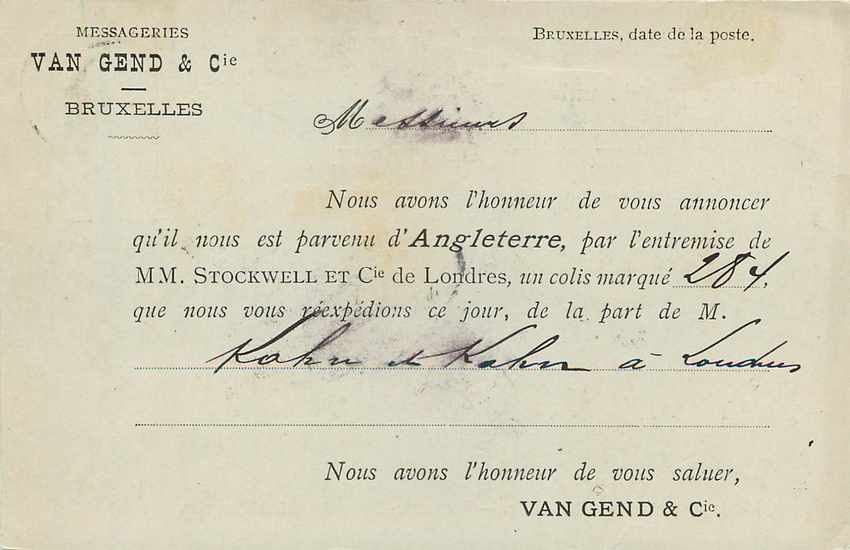 MESSAGERIES
VAN GEND & Cie
BRUXELLES
BRUXELLES, date de la poste.
Messieurs
Nous avons l'honneur de vous annoncer
qu'il nous est parvenu d'Angleterre, par l'entremise de
MM. STOCKWELL ET Cie de Londres, un colis marqué 284,
que nous vous réexpédions ce jour, de la part de M.
Kahn et Kahn à Londres
Nous avons l'honneur de vous saluer,
VAN GEND & Cie.